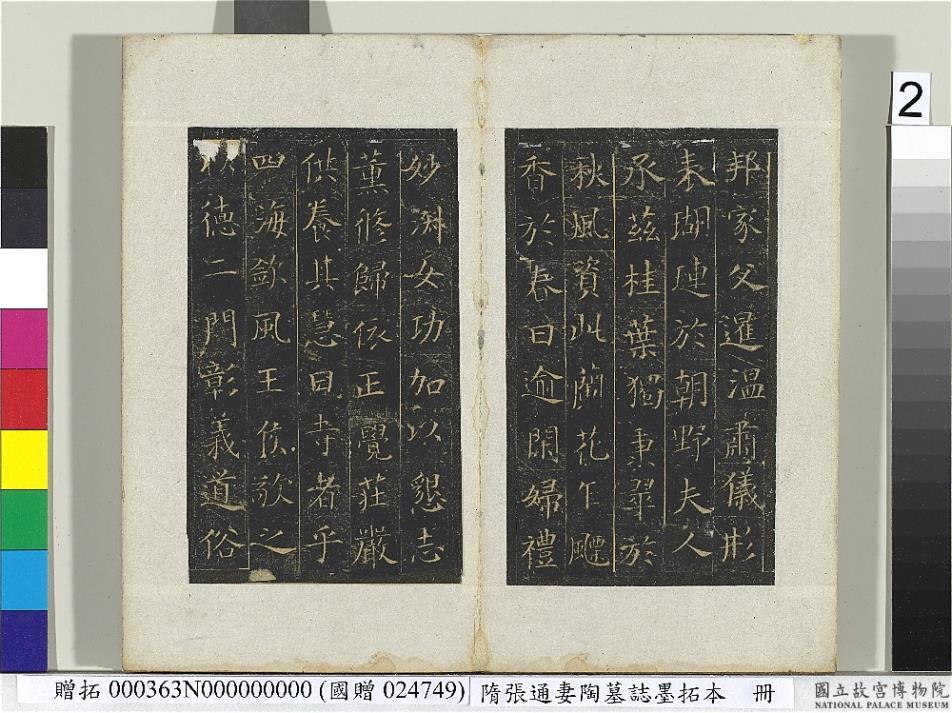 邦家父暹溫肅儀形
表瑚璉於朝野夫人
承茲桂葉獨秉翠於
秋風資此蘭花乍飄
香於春日逾閑婦禮
妙洞女功加以懇志
薰修歸依正覺莊嚴
供養其慧日寺者乎
四海欽風王侯欽之
德二門彰義道俗
2
贈拓 000363N000000000 (國贈 024749) 隋張通妻陶墓誌墨拓本 冊
國立故宮博物院
NATIONAL PALACE MUSEUM